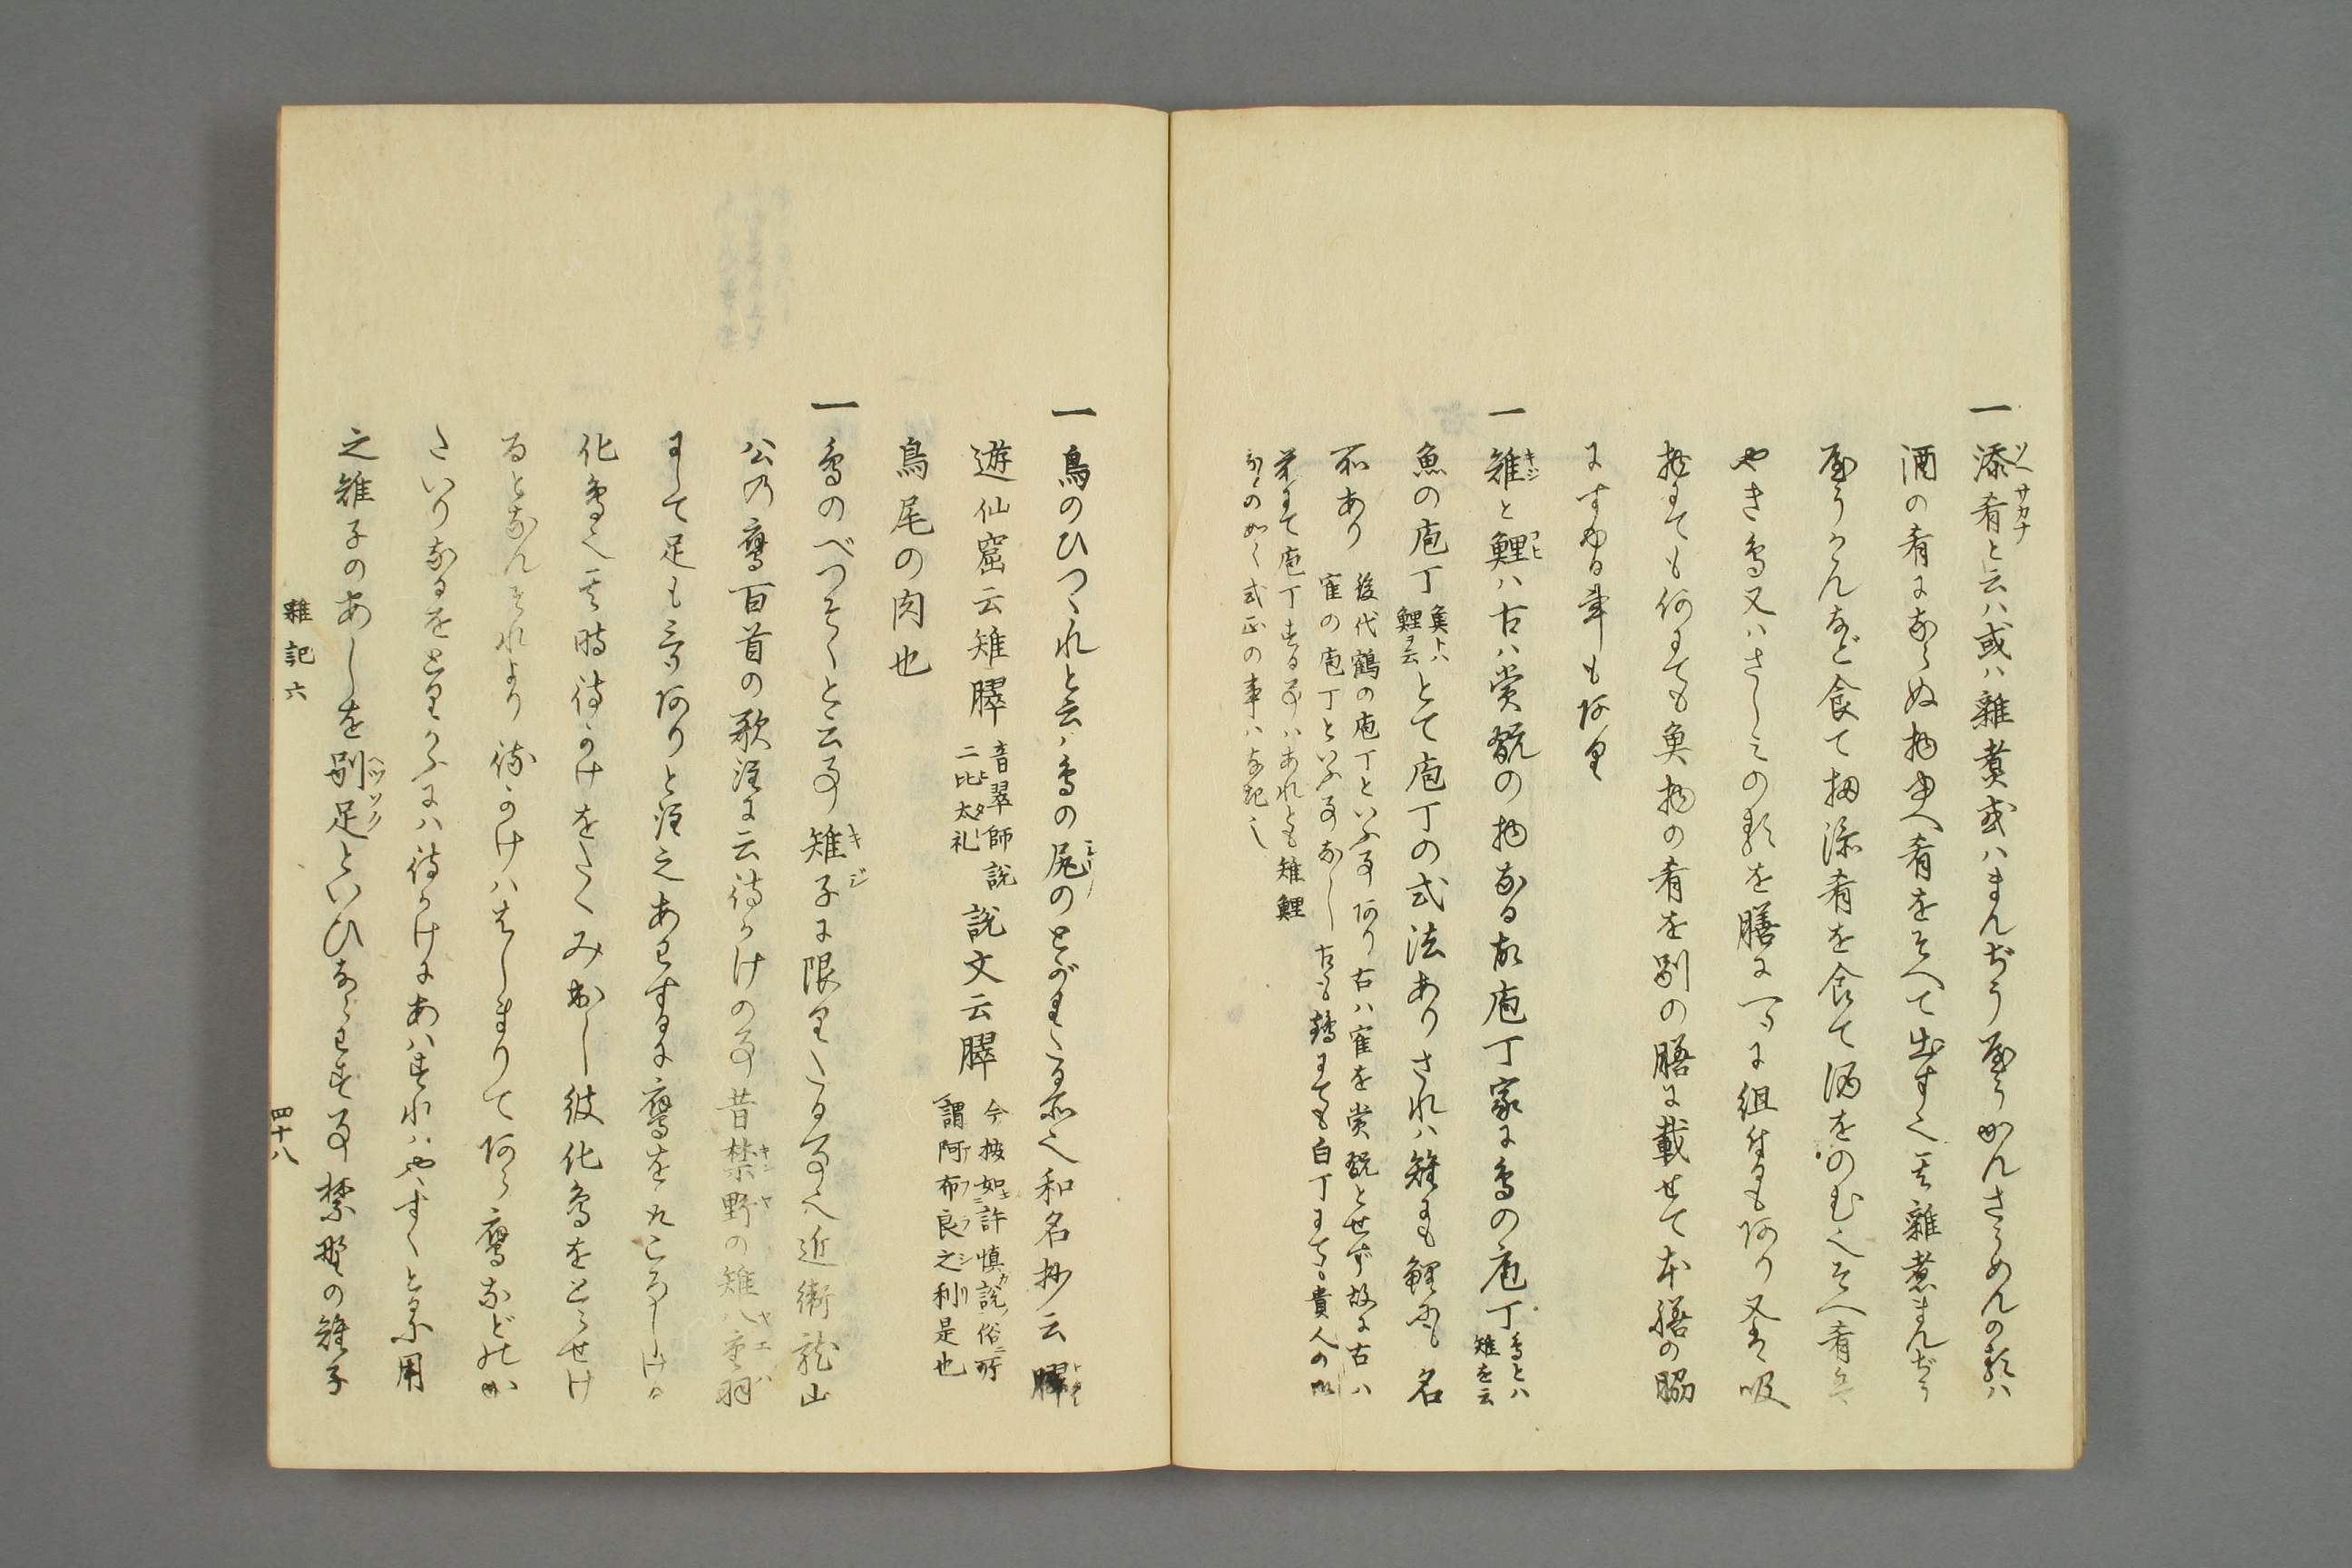 一添肴と云ハ或ハ雑煮或ハまんぢうやうかんさうめんの類ハ
酒の肴にならぬ物ゆへ肴をそへて出す也其雑煮まんぢう
やうかんなど食て扨添肴を食て酒をのむ也そへ肴ハ
やき鳥又ハさしみの類を膳に一ツに組付るも阿り又ハ吸
物にても何にても魚物の肴を別の膳に載せて本膳の脇
にすゆる事も阿里
一雉と鯉ハ古ハ賞翫の物なる故庖丁家に鳥の庖丁鳥とハ雉を云
魚の庖丁魚とハ鯉を云とて庖丁の式法ありされハ雉にも鯉にも名
所あり後代鶴の庖丁といふ事阿り古ハ雀を賞翫とせず故に古ハ
雀の庖丁といふ事なし古も鶴にても白丁にても貴人の
にて庖丁する事ハあれとも雉鯉
の如く式正の事ハ
一鳥のひつたれと云ハ鳥の尻のとがりたる所也和名抄云臎
遊仙窟云雉臎音翠師説比太礼説文云臎今按如許慎説俗所謂阿布良之利是也
鳥尾の肉也
一鳥のべつそくと云事雉子に限りたる事也近衛龍山
公の鷹百首の歌注に云待かけの事昔禁野の雉八重羽
にして足も三ツ阿りと注之あはするに鷹を
化鳥也其時待かけをたくみ出し彼化鳥をとらせけ
るとなんそれより待かけハはしまりて阿ら鷹などのか
たいりなるをとりかふにハ待かけにあハすれハやすくとる用
之雉子のあしを別足といひならはす事禁野の雉子
雑記六
四十八